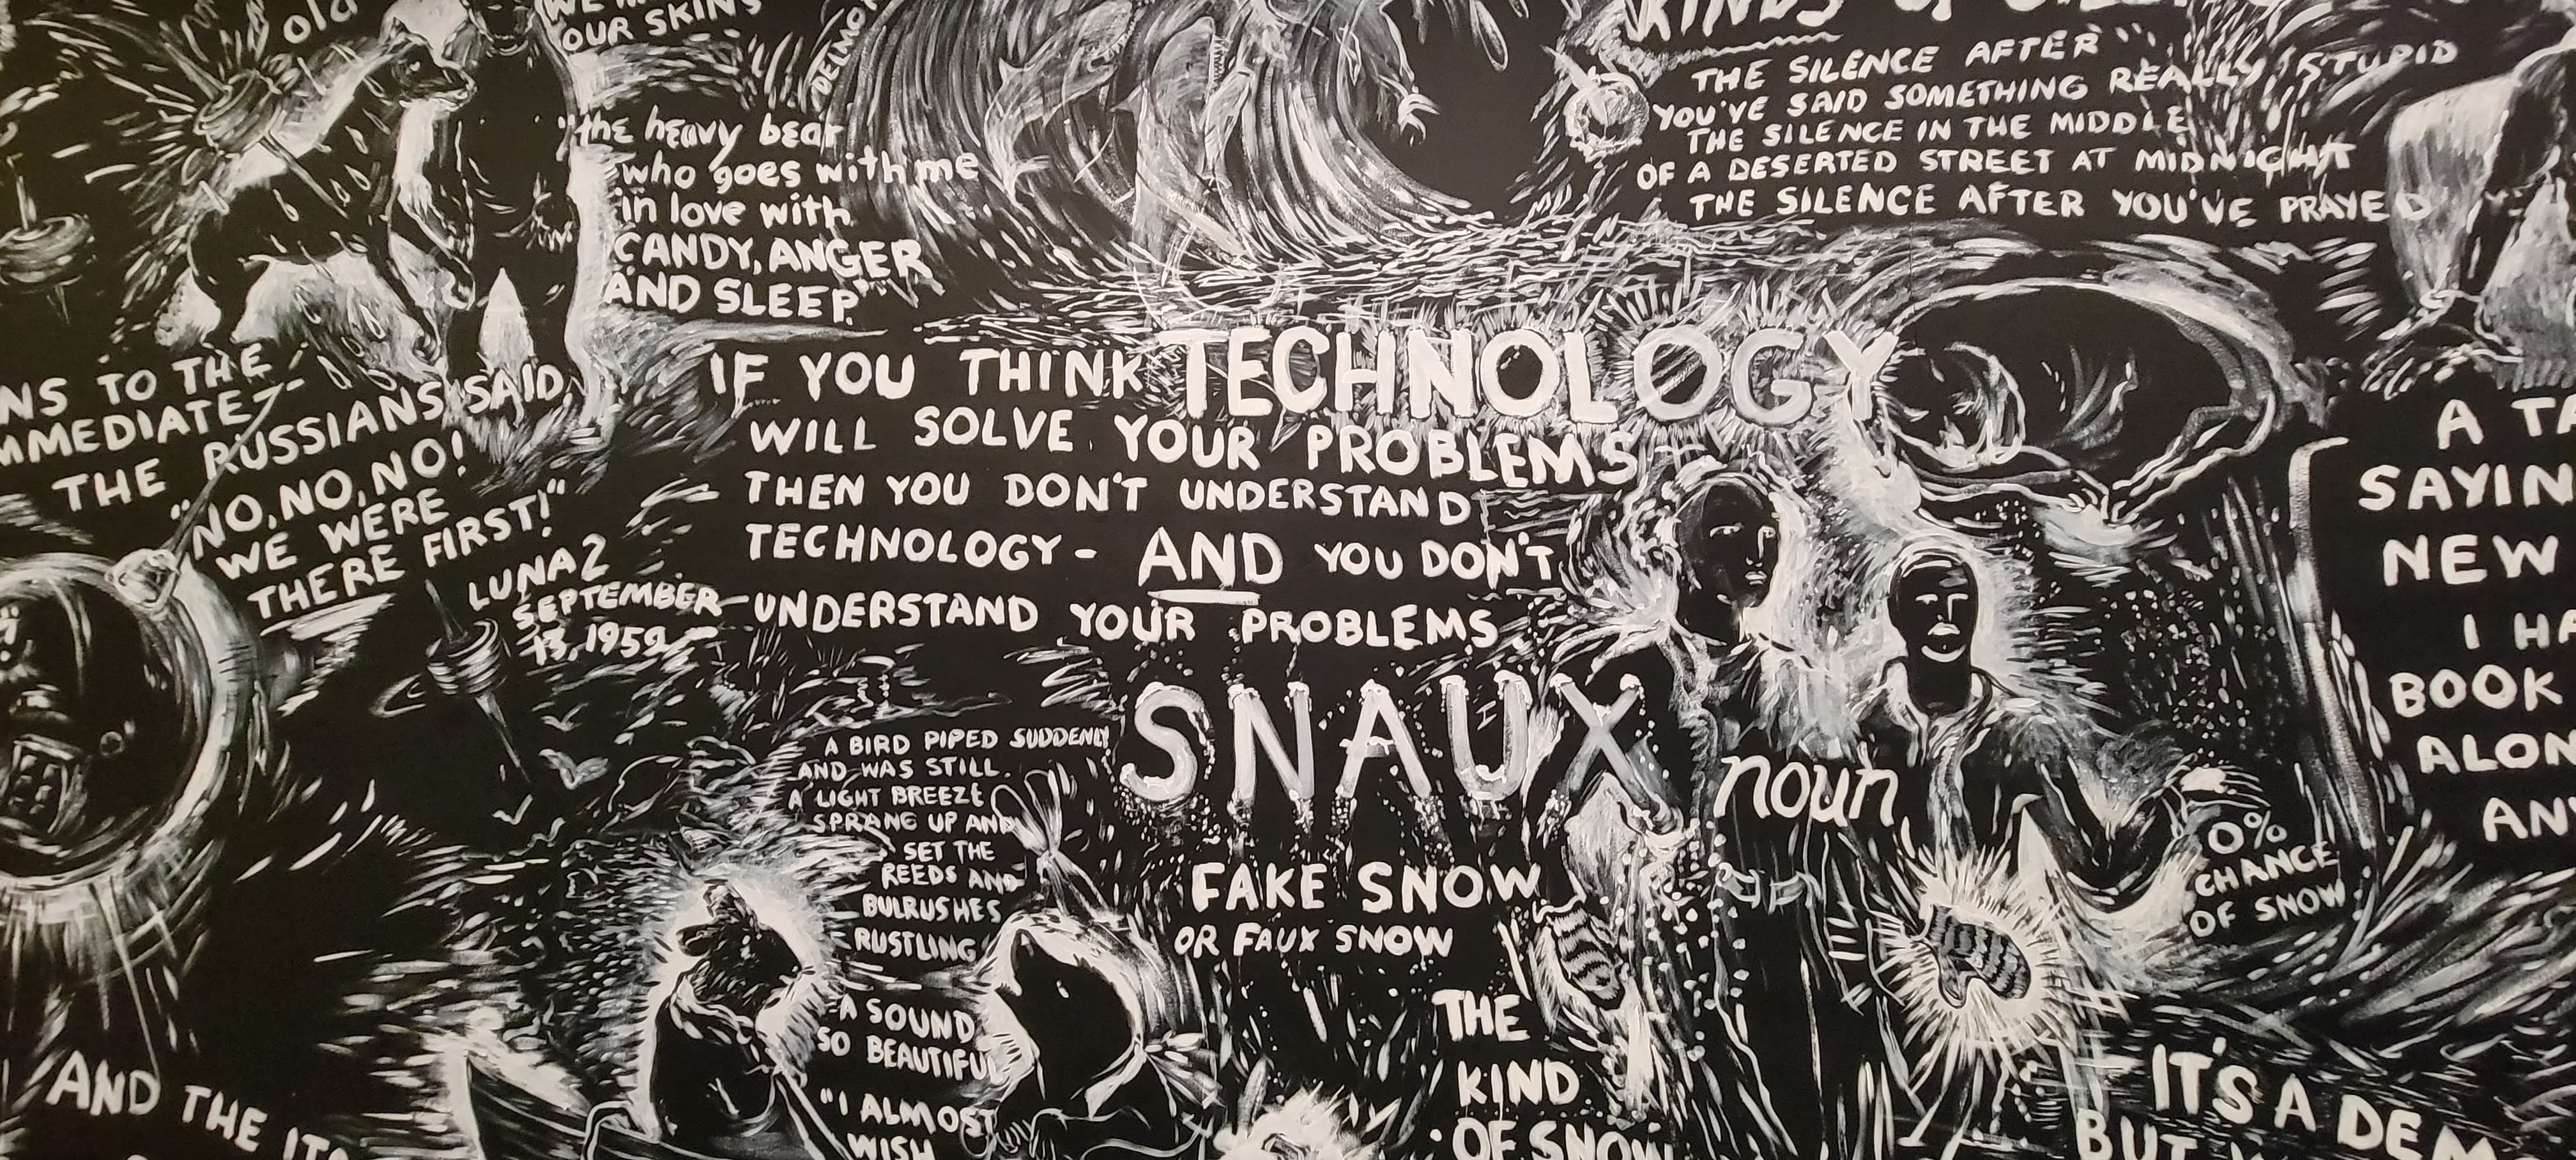 old
OUR SKINS
"the heavy bear
who goes with me
in love with
CANDY, ANGER
AND SLEEP."
THE SILENCE AFTER
YOU'VE SAID SOMETHING REALLY STUPID
THE SILENCE IN THE MIDDLE
OF A DESERTED STREET AT MIDNIGHT
THE SILENCE AFTER YOU'VE PRAYED
NS TO THE
MMEDIATE-
THE RUSSIANS SAID,
"NO, NO, NO!
WE WERE
THERE FIRST!"
LUNA 2
SEPTEMBER
13, 1959
IF YOU THINK TECHNOLOGY
WILL SOLVE YOUR PROBLEMS
THEN YOU DON'T UNDERSTAND
TECHNOLOGY - AND YOU DON'T
UNDERSTAND YOUR PROBLEMS
A TA
SAYIN
NEW
I HA
BOOK
ALON
AN
A BIRD PIPED SUDDENLY
AND WAS STILL.
A LIGHT BREEZE
SPRANG UP AND
SET THE
REEDS AND
BULRUSHES
RUSTLING
A SOUND
SO BEAUTIFUL
"I ALMOST
WISH
SNAUX
noun
FAKE SNOW
OR FAUX SNOW
THE
KIND
OF SNOW
0%
CHANCE
OF SNOW
AND THE
IT'S A DEM
BUT